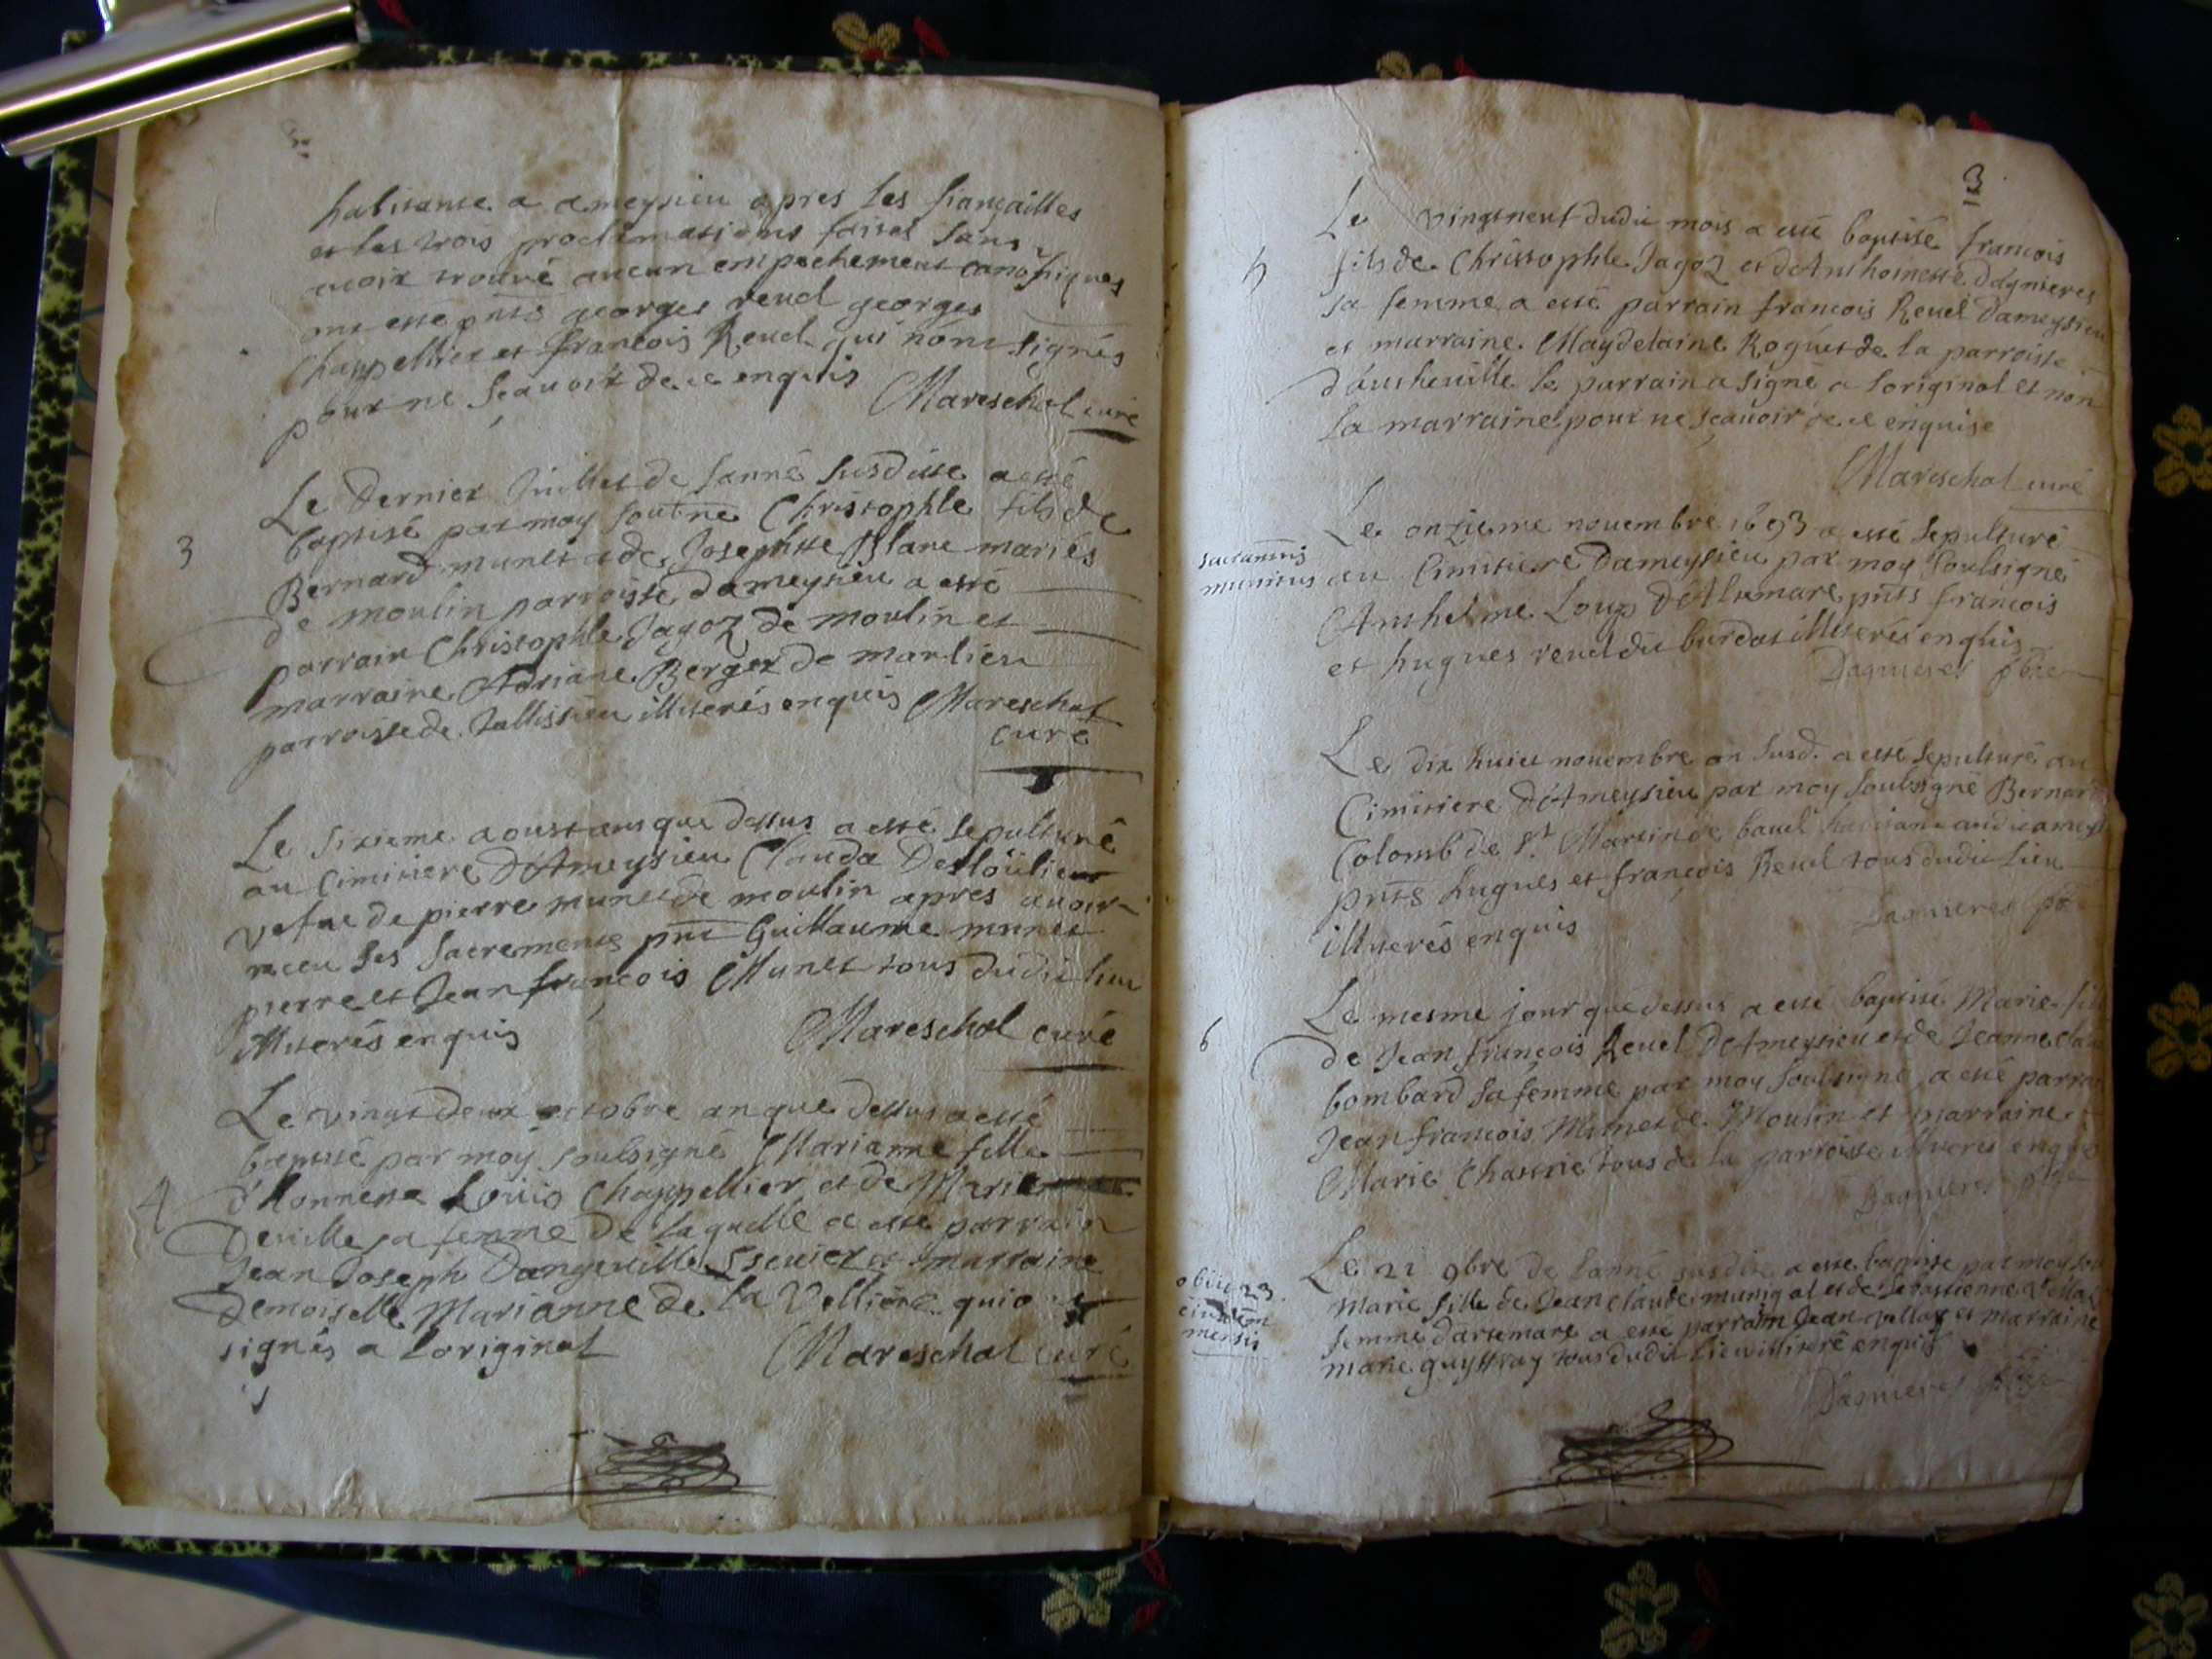 habitante a ameysieu apres les fiançailles
et les trois proclamations faites sans
avoir trouvé aucun empechement canoniques
ont esté pnts georges revel georges
Chappellier et françois Revel qui n'ont signés
pour ne sçavoir de ce enquis Mareschal curé
Le dernier Juillet de lanné susditte a esté
3
baptisé par moy soubne Christophle fils de
Bernard munet et de Josephte Blanc mariés
de moulin parroisse dameysieu a esté
parrain Christophle Jagoz de moulin et
marraine Adriane Berger de marlieu
parroisse de Tallissieu illiterés enquis Mareschal
curé
Le sixieme aoust an que dessus a esté sepulturé
au Cimitiere d'Ameysieu Clauda
vefve de pierre munet de moulin apres avoir
receu ses sacrements pnt Guillaume munet
pierre et Jean françois Munet tous dudit lieu
illiterés enquis Mareschal curé
Le vingt deux octobre an que dessus a esté
baptisé par moy soulsigné Marianne fille
4
d'honneste Louis Chappellier et de Marie
Deville sa femme de laquelle a esté parrain
Jean Joseph Dangeville Escuier et marraine
Demoiselle Marianne de la Velliere qui o
signés a Loriginal Mareschal curé
123
Le vingtneuf dudit mois a esté baptisé françois
5
fils de Christophle Jagoz et de Anthoinette Dagnieres
sa femme a esté parrain francois Revel Dameysieu
et marraine Maydelaine Roguet de la parroisse
le parrain a signé a loriginal et non
la marraine pour ne sçavoir de ce enquise
Mareschal curé
Le onzieme novembre 1693 a esté sepulturé
sacramtis
munitus
au Cimitiere Dameysieu par moy soulsigné
Anthelme Loup D'Artemare pnts françois
et hugues revel du burdat illiterés enquis
Dagnieres pbre
Le dix huict novembre an susd. a esté sepulturé au
Cimitiere d'Ameysieu par moy soubsigné Bernard
Colomb de St Martin de bavel habitant audit ameys
pnts hugues et françois Revel tous dudit lieu
illiterés enquis Dagnieres pbre
Le mesme jour que dessus a esté baptisé Marie fil
6
de Jean françois Revel D'Ameysieu et de Jeanne clau
bombard sa femme par moy soulsigné a esté parra
Jean francois Munet de Moulin et marraine
Marie tous de la parroisse illiterés enquis
Dagnieres pbre
Le 21 9bre de lanné susdite a esté baptisé par moy sou
obiit 23
eiusdem
mensis
Marie fille de Jean claude munigal et de Sebastienne
femme dartemare a esté parrain Jean et marraine
marie tous dudit lieu illiteré enquis
Dagnieres pbre